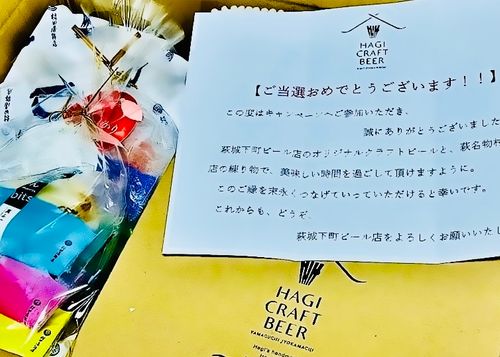 HAGI
CRAFT
BEER
【ご当選おめでとうございます！！】
この度はキャンペーンへご参加いただき、
誠にありがとうございました
萩城下町ビール店のオリジナルクラフトビールと、萩名物村
店の練り物で、美味しい時間を過ごして頂けますように。
このご縁を末永くつなげていっていただけると幸いです。
これからも、どうぞ、
萩城下町ビール店をよろしくお願いいたし
HAGI
CRAFT
BEER
YAMAGUCHI JYOKAMACHI
Hagi's handm